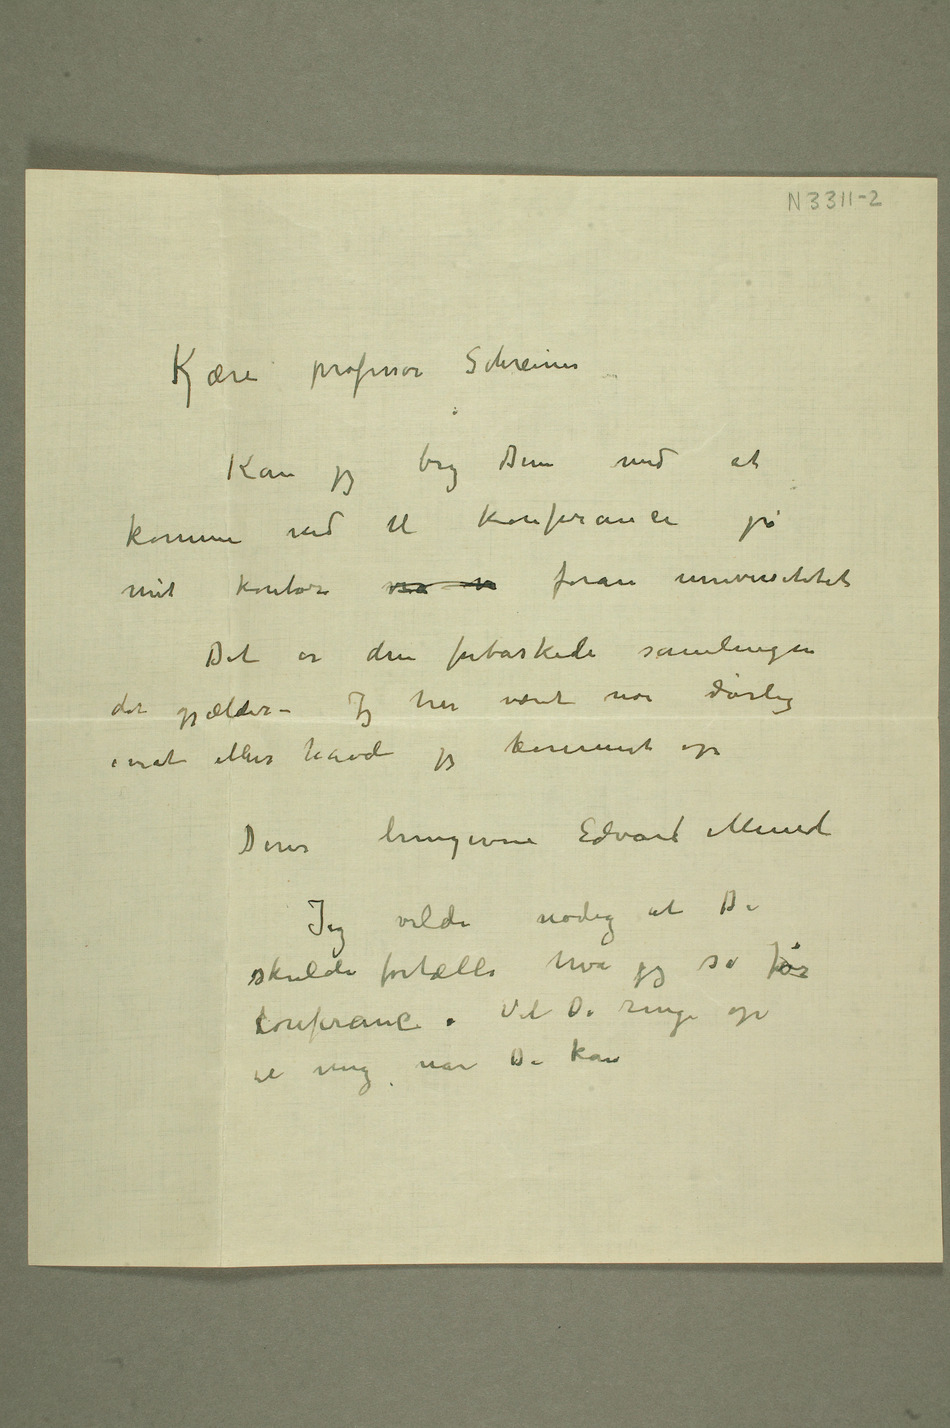 N 3311-2
Kjære professor Schreiner
Kan jeg bry Dem med at
komme ned til konferance på
mit kontor foran universitetet
Det er den forbaskede samlingen
det gjælder – Jeg har været noe dårlig
inat ellers havde jeg kommet op
Deres hengivne Edvard Munch
Jeg vilde nødig at De
skulde fortælle hva jeg sa før
konferance. Vil De ringe op
til mig når De kan